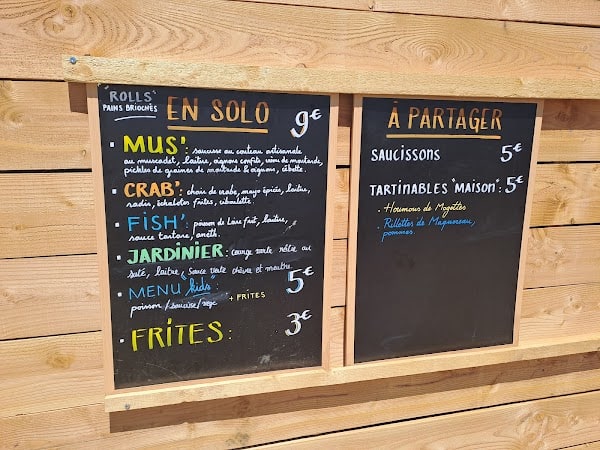 "ROLLS"
PAINS BRIOCHÉS
EN SOLO 9€
· MUS': saucisse au couteau artisanale
au muscadet, laitue, oignons confits, crème de moutarde,
pickles de graines de moutarde & oignons, cébette.
· CRAB': chair de crabe, mayo épicée, laitue,
radis, échalotes frites, ciboulette.
· FISH': poisson de Loire frit, laitue,
sauce tartare, aneth.
· JARDINIER: courge verte rôtie au
saté, laitue, sauce verte chèvre et menthe.
· MENU "kids" 5€
poisson/saucisse/vege + FRITES
· FRITES: 3€
À PARTAGER
SAUCISSONS 5€
TARTINABLES "MAISON": 5€
. Houmous de Mogettes
. Rillettes de Maquereau,
pommes.